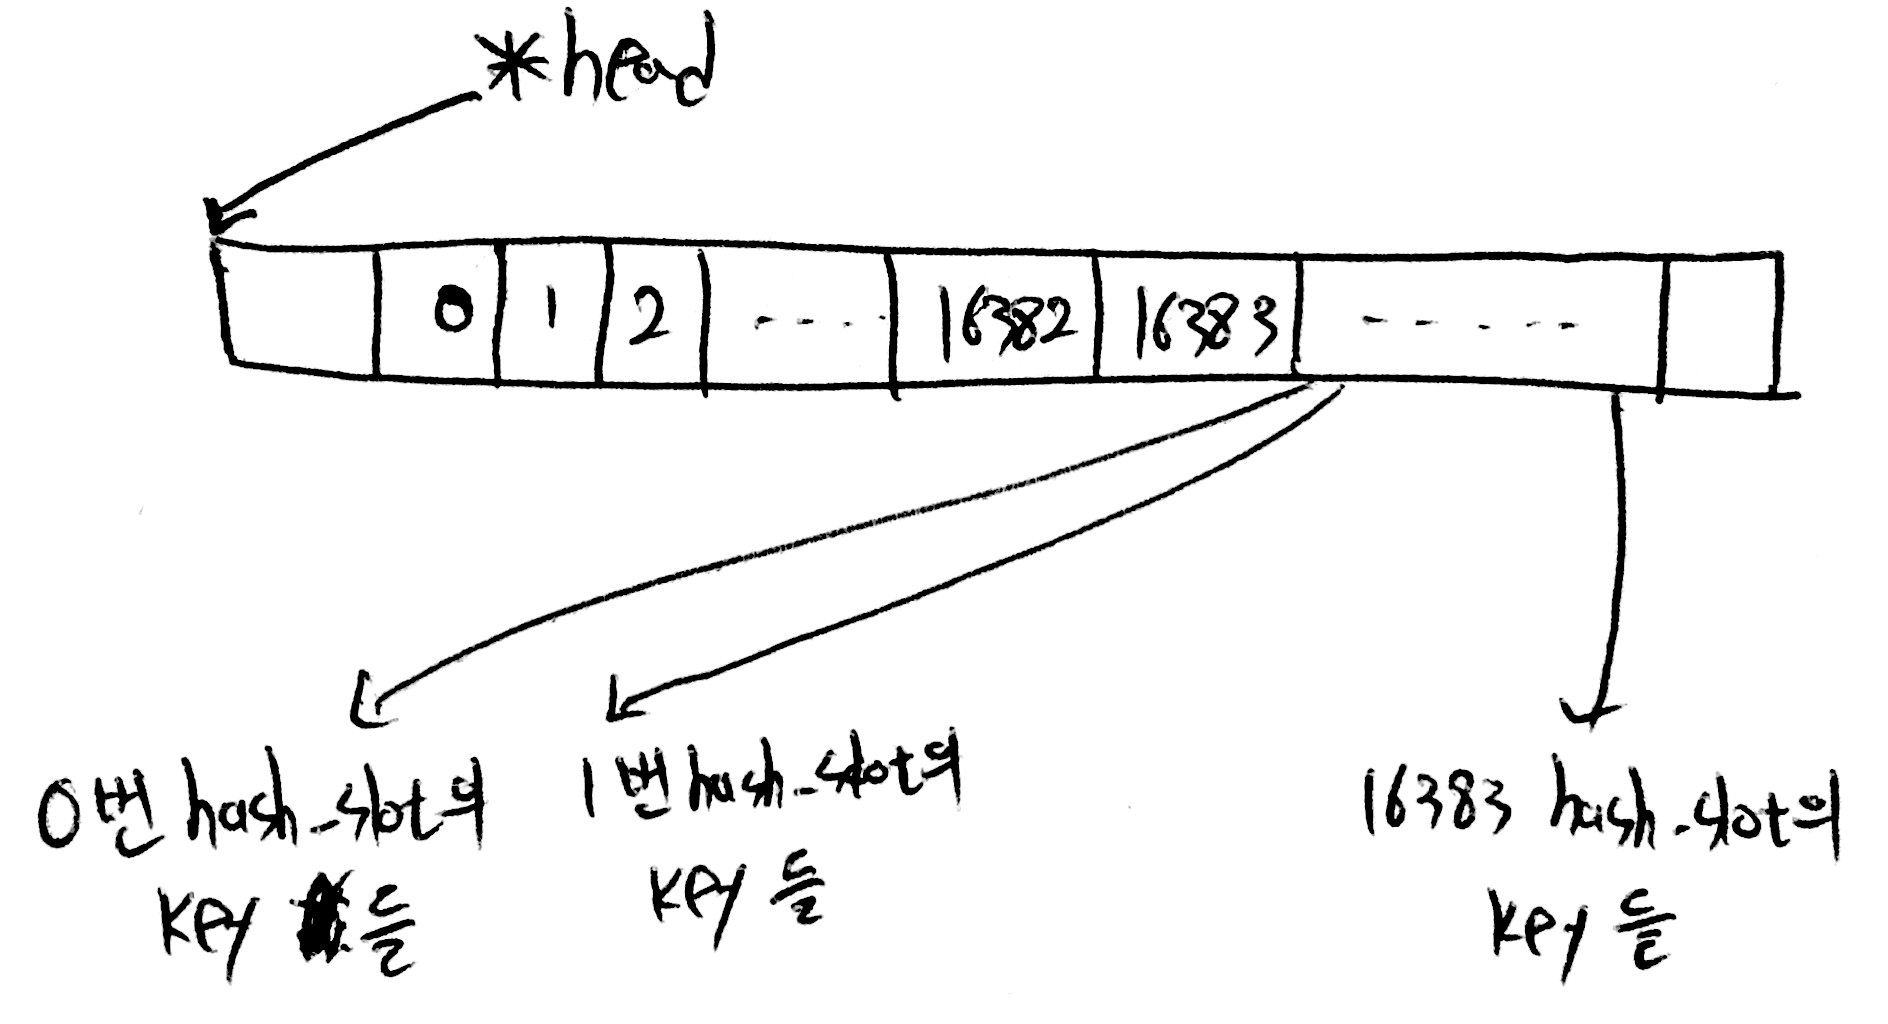 *head
0 1 2 ---- 16382 16383 ------
0번 hash_slot의
key 들
1번 hash_slot의
key 들
16383 hash_slot의
key 들